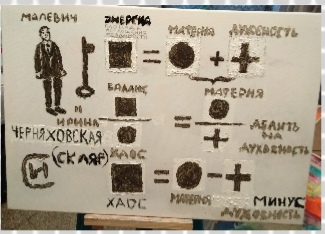 МАЛЕВИЧ
ЭНЕРГИЯ
МАТЕРИЯ
ДУХОВНОСТЬ
=
+
БАЛАНС
МАТЕРИЯ
И
ИРИНА
ЧЕРНЯХОВСКАЯ
(СКЛЯР)
ХАОС
=
ДЕЛИТЬ
НА
ДУХОВНОСТЬ
=
-
ХАОС
МАТЕРИЯ
МИНУС
ДУХОВНОСТЬ